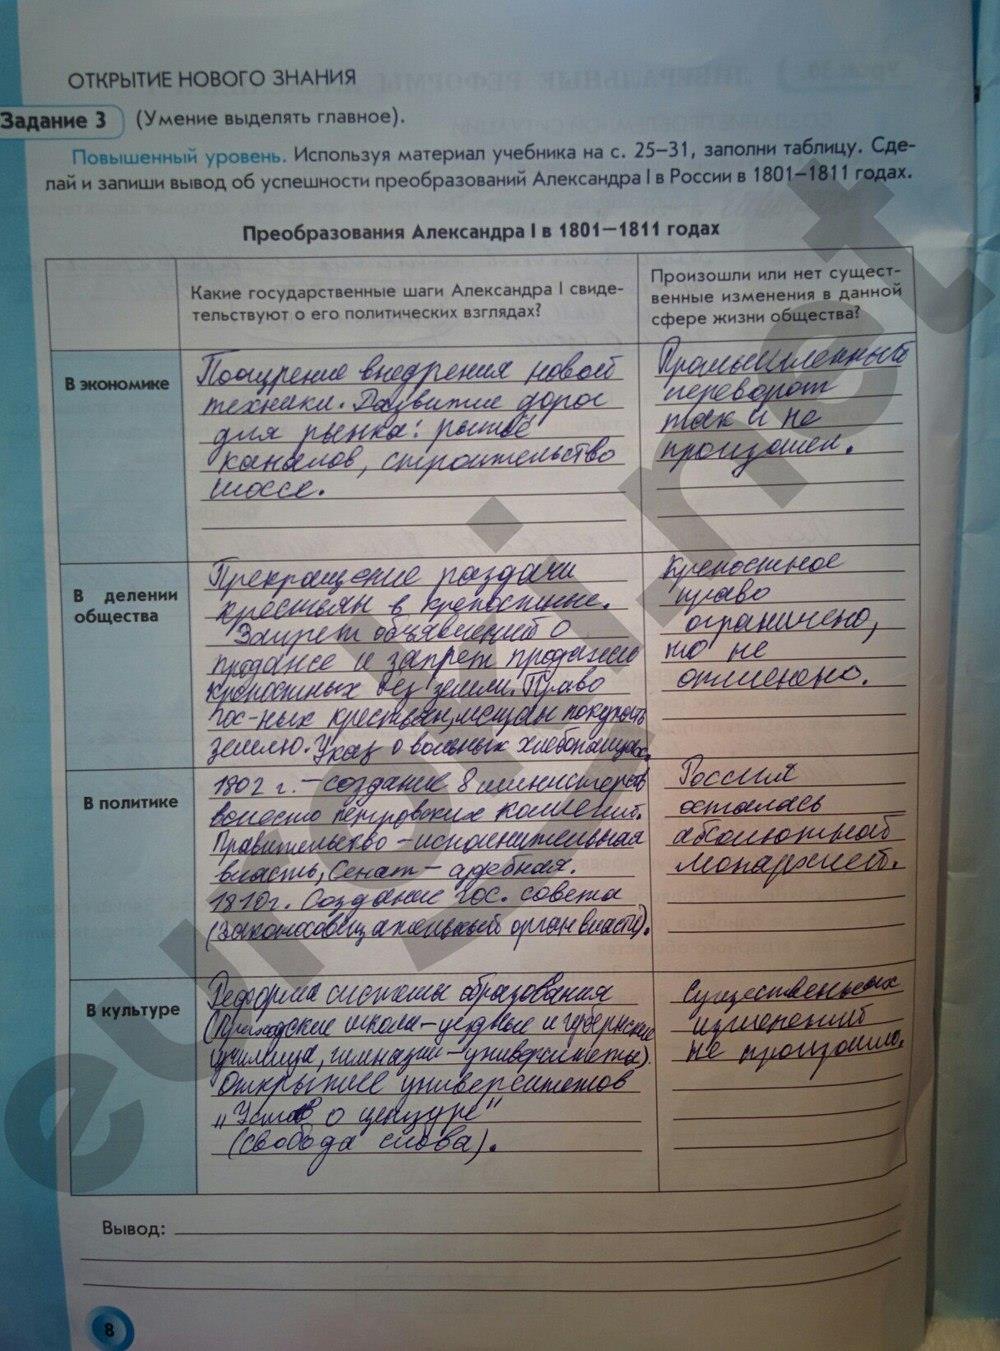 ОТКРЫТИЕ НОВОГО ЗНАНИЯ
Задание 3 (Умение выделять главное).
Повышенный уровень. Используя материал учебника на с. 25–31, заполни таблицу. Сде-
лай и запиши вывод об успешности преобразований Александра I в России в 1801–1811 годах.
Преобразования Александра I в 1801–1811 годах
Какие государственные шаги Александра I свиде-
тельствуют о его политических взглядах?
Произошли или нет сущест-
венные изменения в данной
сфере жизни общества?
В экономике
Поощрение внедрения новой
техники. Развитие дорог
для рынка: рытьё
каналов, строительство
шоссе.
Промышленный
переворот
так и не
произошел.
В делении
общества
Прекращение раздачи
крестьян в крепостные.
Запрет объявлений о
продаже и запрет продажи
крепостных без земли. Право
гос-ных крестьян, мещан покупать
землю. Указ о вольных хлебопашцах.
Крепостное
право
ограничено,
но не
отменено.
В политике
1802 г. – создание 8 министерств
вместо петровских коллегий.
Правительство – исполнительная
власть, Сенат – судебная.
1810г. Создание Гос. совета
(законосовещательный орган власти).
Россия
осталась
абсолютной
монархией.
В культуре
Реформа системы образования
(Приходские школа – уездные и губернские
училища, гимназии – университеты).
Открытие университетов
"Устав о цензуре"
(свобода слова).
Существенных
изменений
не произошло.
Вывод:
8
eurokinet